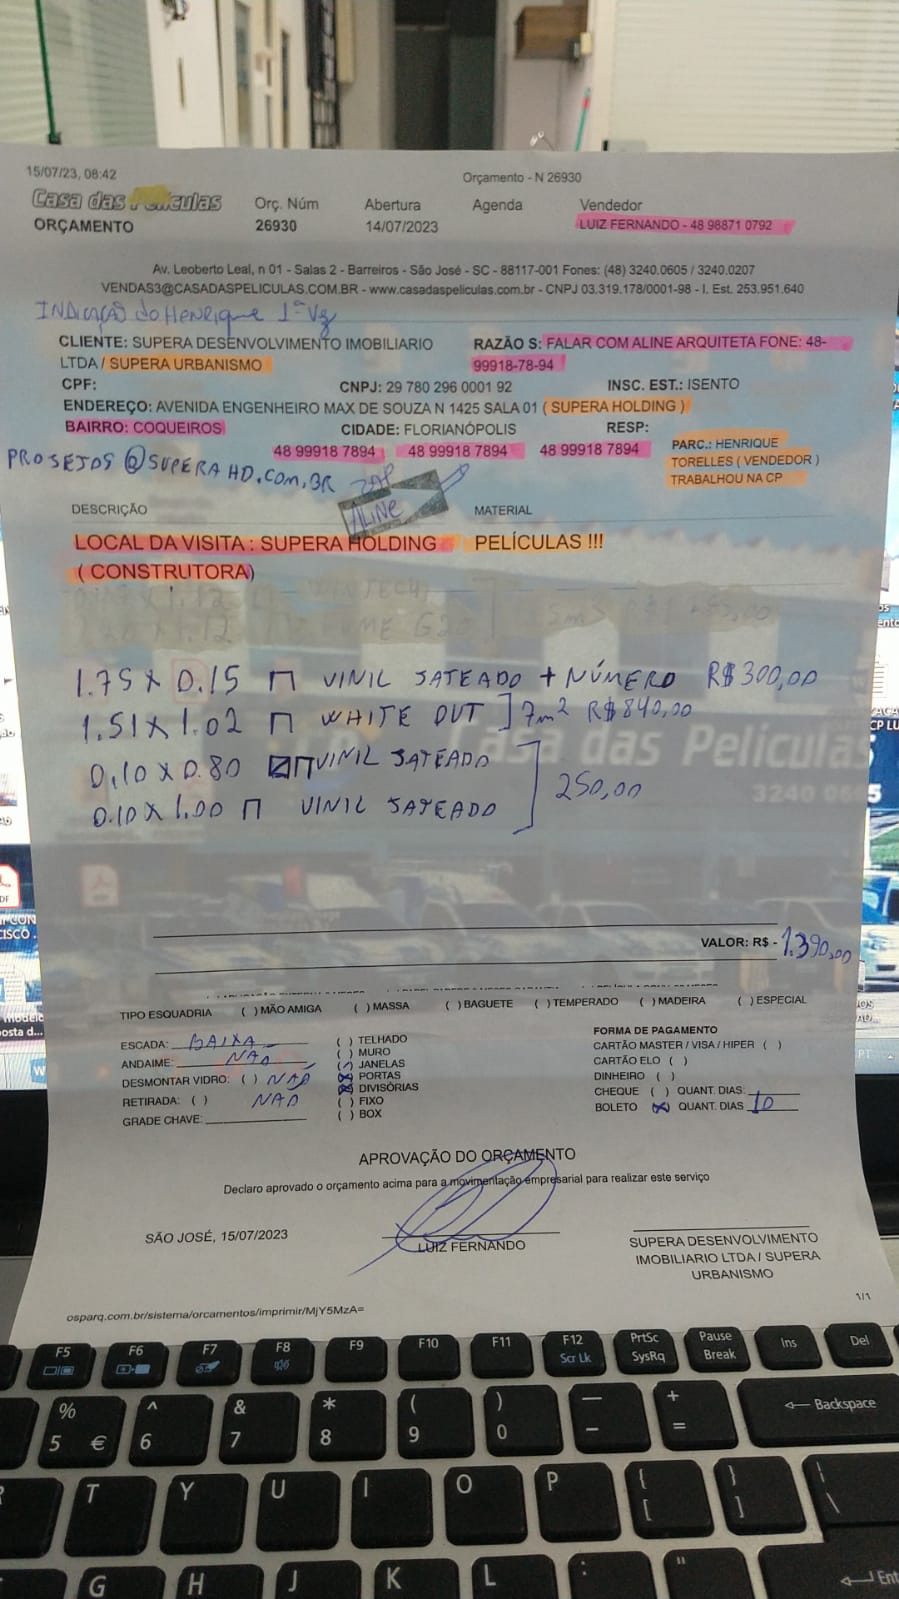 15/07/23, 08:42
Orçamento - N 26930
Casa das Películas
Orç. Núm Abertura Agenda Vendedor
ORÇAMENTO 26930 14/07/2023 LUIZ FERNANDO - 48 98871 0792
Av. Leoberto Leal, n 01 - Salas 2 - Barreiros - São José - SC - 88117-001 Fones: (48) 3240.0605 / 3240.0207
VENDAS3@CASADASPELICULAS.COM.BR - www.casadaspeliculas.com.br - CNPJ 03.319.178/0001-98 - I. Est. 253.951.640
INDICAÇÃO do Henrique 1ª Vz
CLIENTE: SUPERA DESENVOLVIMENTO IMOBILIARIO RAZÃO S: FALAR COM ALINE ARQUITETA FONE: 48-
LTDA / SUPERA URBANISMO 99918-78-94
CPF: CNPJ: 29 780 296 0001 92 INSC. EST.: ISENTO
ENDEREÇO: AVENIDA ENGENHEIRO MAX DE SOUZA N 1425 SALA 01 ( SUPERA HOLDING )
BAIRRO: COQUEIROS CIDADE: FLORIANÓPOLIS RESP:
48 99918 7894 48 99918 7894 48 99918 7894
PARC.: HENRIQUE
TORELLES ( VENDEDOR )
TRABALHOU NA CP
PROSEJOS @SUPERAHD.COM.BR ZAP
ALINE
DESCRIÇÃO MATERIAL
LOCAL DA VISITA : SUPERA HOLDING PELÍCULAS !!!
( CONSTRUTORA)
1.75 x 0.15 Π VINIL JATEADO + NÚMERO R$300,00
1.51 x 1.02 Π WHITE OUT ] 7m² R$840,00
0,10 x 0.80 Π VINIL JATEADO
0.10 x 1.00 Π VINIL JATEADO ] 250,00
Casa das Películas
3240 0605
VALOR: R$ - 1.390,00
TIPO ESQUADRIA ( ) MÃO AMIGA ( ) MASSA ( ) BAGUETE ( ) TEMPERADO ( ) MADEIRA ( ) ESPECIAL
ESCADA: BAIXA
ANDAIME: NÃO
DESMONTAR VIDRO: ( ) NÃO
RETIRADA: ( ) NÃO
GRADE CHAVE:
( ) TELHADO
( ) MURO
( ) JANELAS
(X) PORTAS
(X) DIVISÓRIAS
( ) FIXO
( ) BOX
FORMA DE PAGAMENTO
CARTÃO MASTER / VISA / HIPER ( )
CARTÃO ELO ( )
DINHEIRO ( )
CHEQUE ( ) QUANT. DIAS:
BOLETO (X) QUANT. DIAS 10
APROVAÇÃO DO ORÇAMENTO
Declaro aprovado o orçamento acima para a movimentação empresarial para realizar este serviço
SÃO JOSÉ, 15/07/2023
LUIZ FERNANDO
SUPERA DESENVOLVIMENTO
IMOBILIARIO LTDA / SUPERA
URBANISMO
1/1
osparq.com.br/sistema/orcamentos/imprimir/MjY5MzA=
F5 F6 F7 F8 F9 F10 F11 F12 PrtSc Pause Ins Del
Scr Lk SysRq Break
% ^ & * ( ) — + Backspace
5 € 6 7 8 9 0 - =
T Y U I O P { } |
[ ] \
G H J K L : " Ent